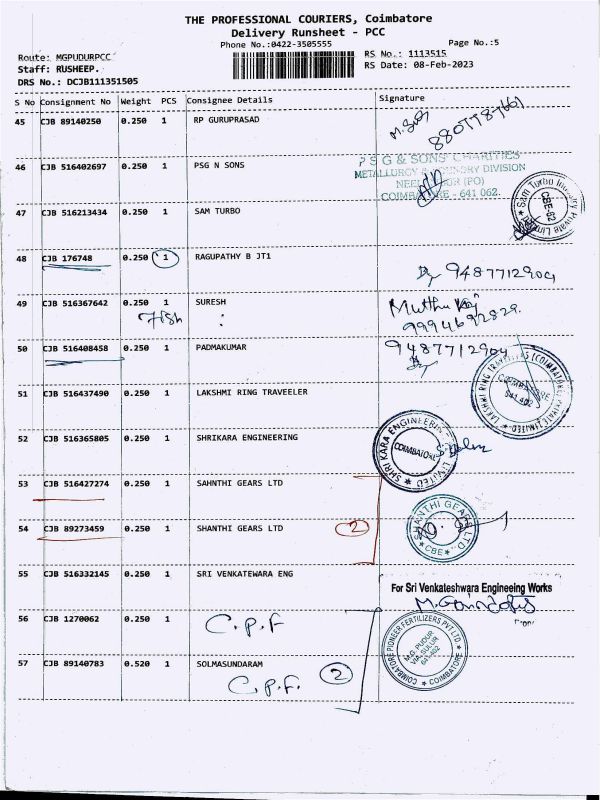 THE PROFESSIONAL COURIERS, Coimbatore
Delivery Runsheet - PCC
Phone No.:0422-3505555
Page No.:5
Route: MGPUDURPCC
Staff: RUSHEEP.
DRS No.: DCJB111351505
RS No.: 1113515
RS Date: 08-Feb-2023
S No Consignment No Weight PCS Consignee Details Signature
45 CJB 89140250 0.250 1 RP GURUPRASAD
46 CJB 516402697 0.250 1 PSG N SONS
P S G & SONS' CHARITIES
METALLURGY & FOUNDRY DIVISION
COIMBATORE - 641 062.
47 CJB 516213434 0.250 1 SAM TURBO
Sam Turbo Industry Private Limited
CBE-62
48 CJB 176748 0.250 1 RAGUPATHY B JT1
9487712904
49 CJB 516367642 0.250 1 SURESH
:
9994692829.
50 CJB 516408458 0.250 1 PADMAKUMAR
9487712904
51 CJB 516437490 0.250 1 LAKSHMI RING TRAVEELER
LAKSHMI RING TRAVELLERS (COIMBATORE) PRIVATE LIMITED
COIMBATORE
641 402
52 CJB 516365805 0.250 1 SHRIKARA ENGINEERING
SHRI KARA ENGINEERING LIMITED
COIMBATORE
53 CJB 516427274 0.250 1 SAHNTHI GEARS LTD
54 CJB 89273459 0.250 1 SHANTHI GEARS LTD
2
SHANTHI GEARS LTD.
CBE
55 CJB 516332145 0.250 1 SRI VENKATEWARA ENG
For Sri Venkateshwara Engineeing Works
56 CJB 1270062 0.250 1
C.P.F
57 CJB 89140783 0.520 1 SOLMASUNDARAM
C.P.F. 2
COIMBATORE PIONEER FERTILIZERS PVT LTD
M.G. PUDUR
VIA. SULUR
641-402
COIMBATORE